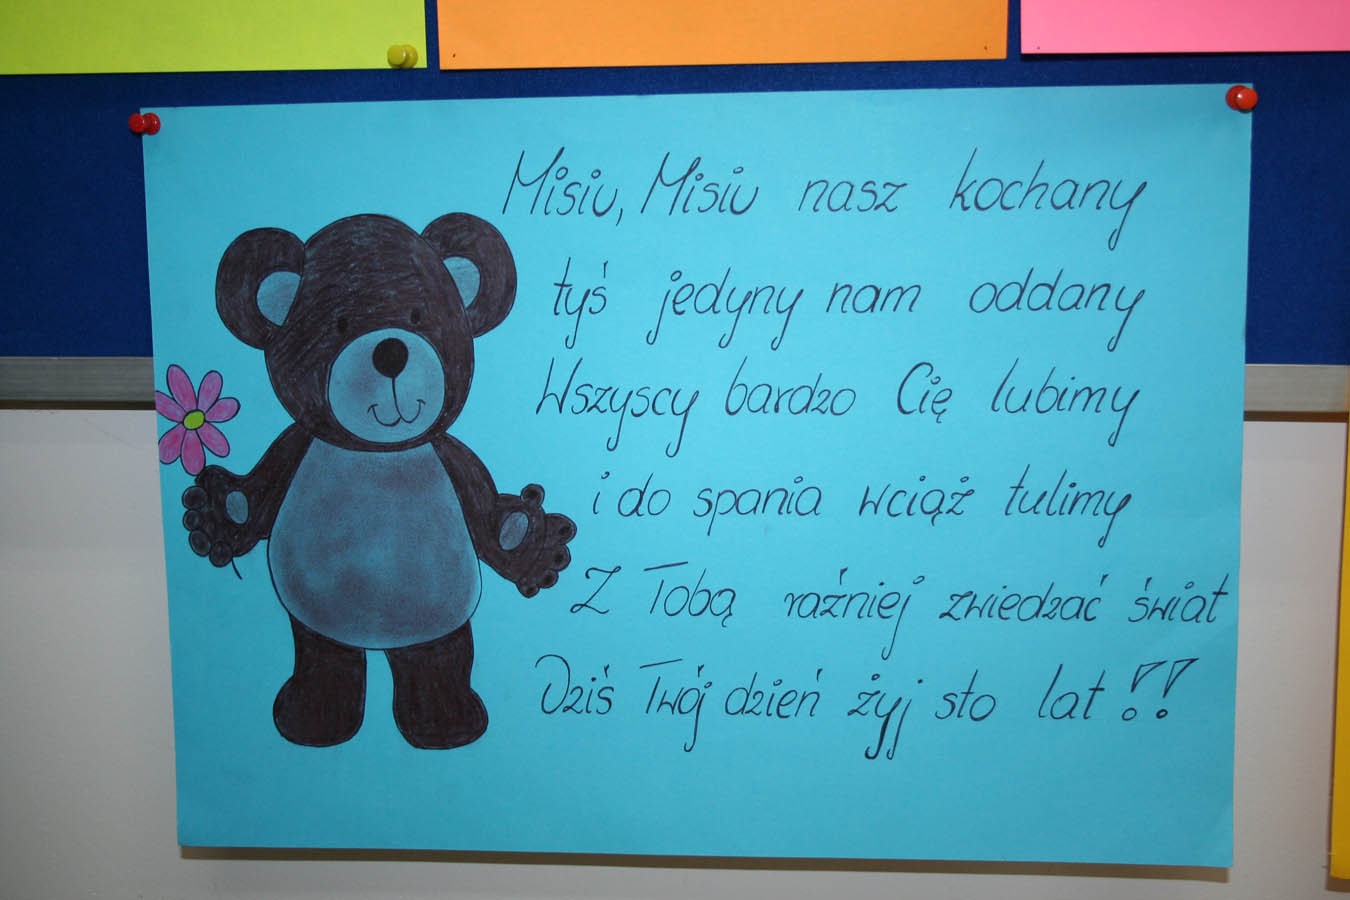 Misiu, Misiu nasz kochany
tyś jedyny nam oddany
Wszyscy bardzo Cię lubimy
i do spania wciąż tulimy
Z Tobą raźniej zwiedzać świat
Dziś Twój dzień żyj sto lat!!